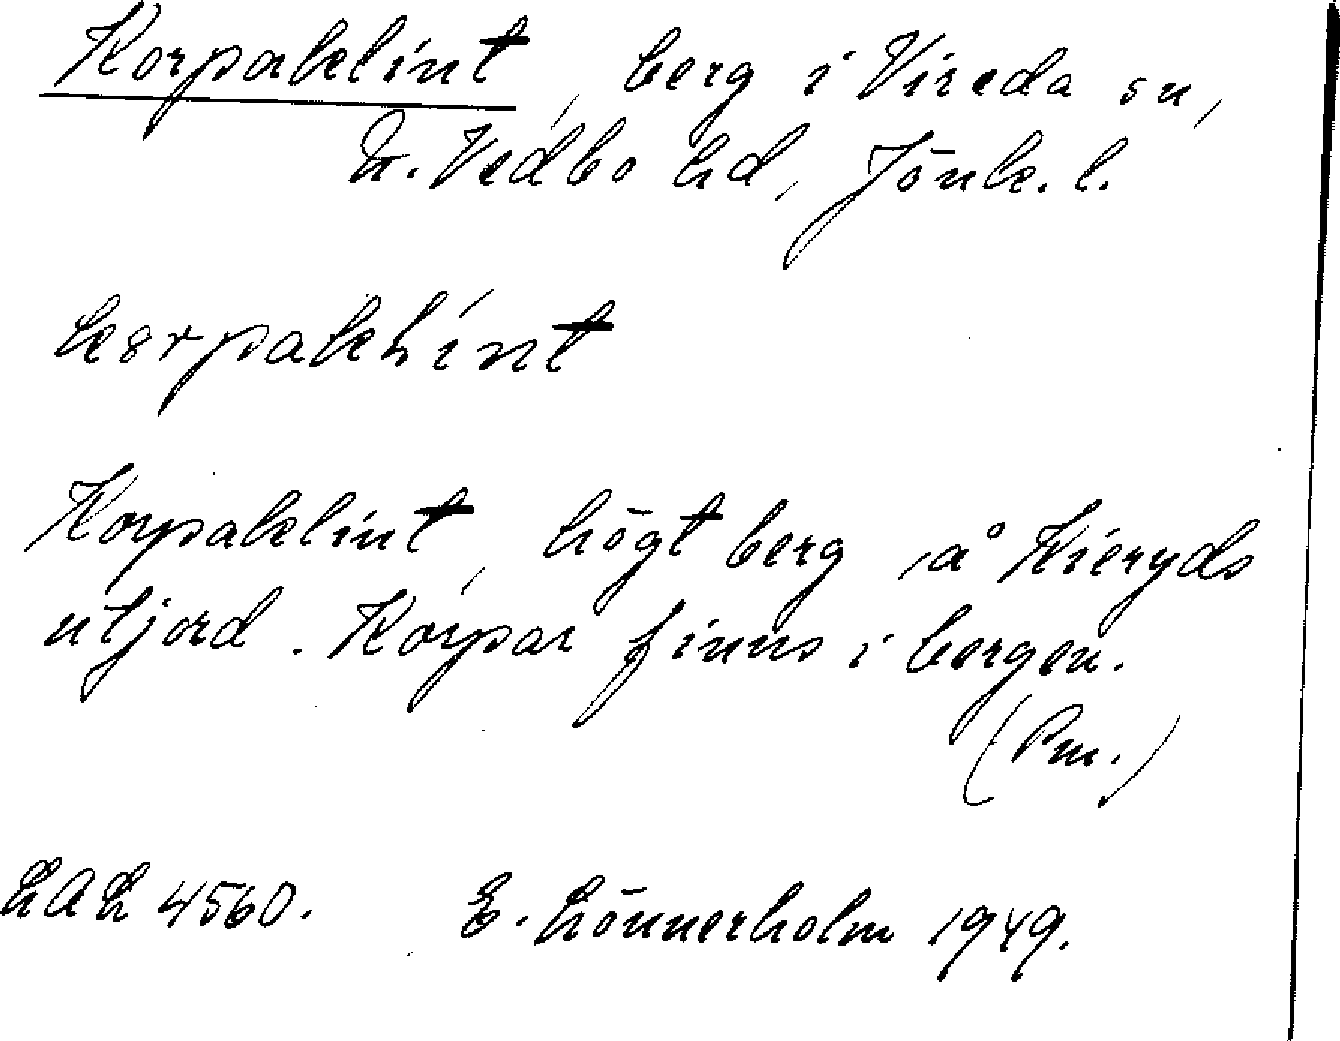 Korpaklint, berg i Vireda sn,
N. Vedbo hd, Jönk. l.
Korpaklint, högt berg, å Kieryds
utjord. Korpar finns i bergen.
(Pm.)
LAL 4560. E. Lönnerholm 1949.